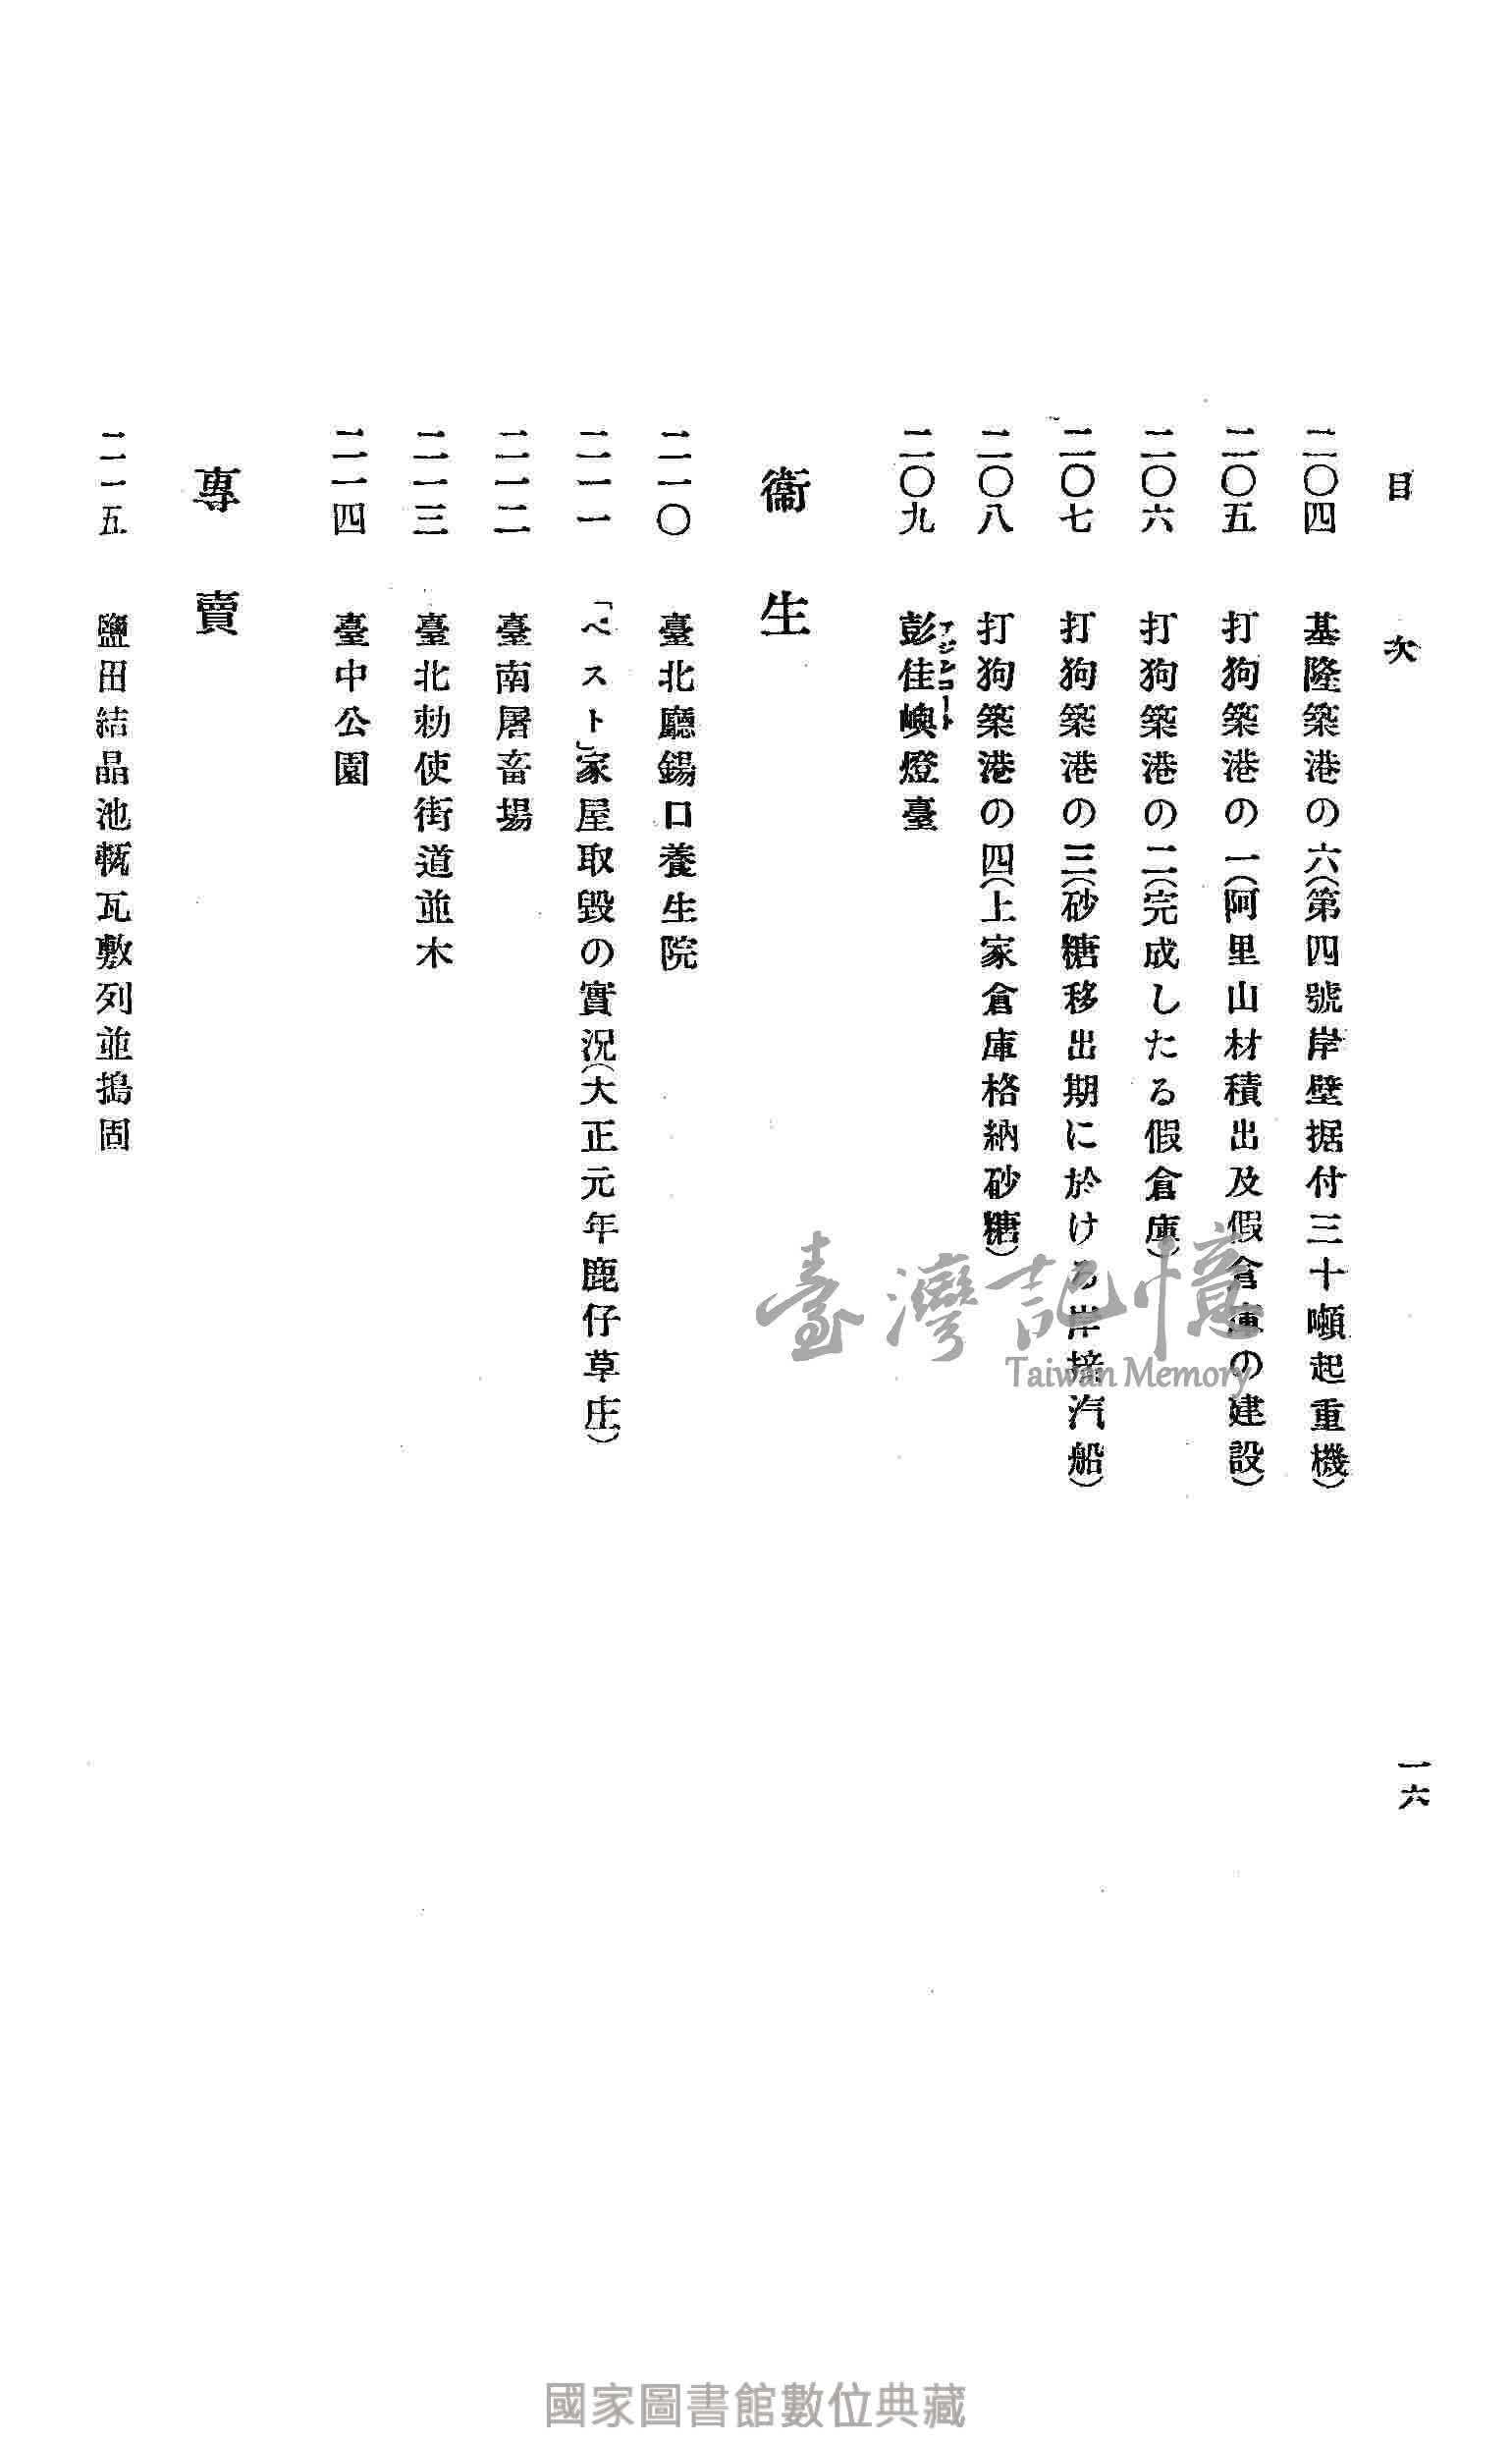 目次
一六
二〇四 基隆築港の六(第四號岸壁据付三十噸起重機)
二〇五 打狗築港の一(阿里山材積出及假倉庫の建設)
二〇六 打狗築港の二(完成したる假倉庫)
二〇七 打狗築港の三(砂糖移出期に於ける岸接汽船)
二〇八 打狗築港の四(上家倉庫格納砂糖)
二〇九 彭佳嶼燈臺
アジンコート
衞生
二一〇 臺北廳錫口養生院
二一一 「ペスト」家屋取毀の實況(大正元年鹿仔草庄)
二一二 臺南屠畜場
二一三 臺北勅使街道並木
二一四 臺中公園
專賣
二一五 鹽田結晶池甎瓦敷列並搗固
臺灣記憶
Taiwan Memory
國家圖書館數位典藏